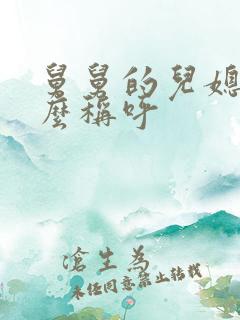 舅舅的兒媳
麼稱呼
滄生為
未經同意禁止轉載